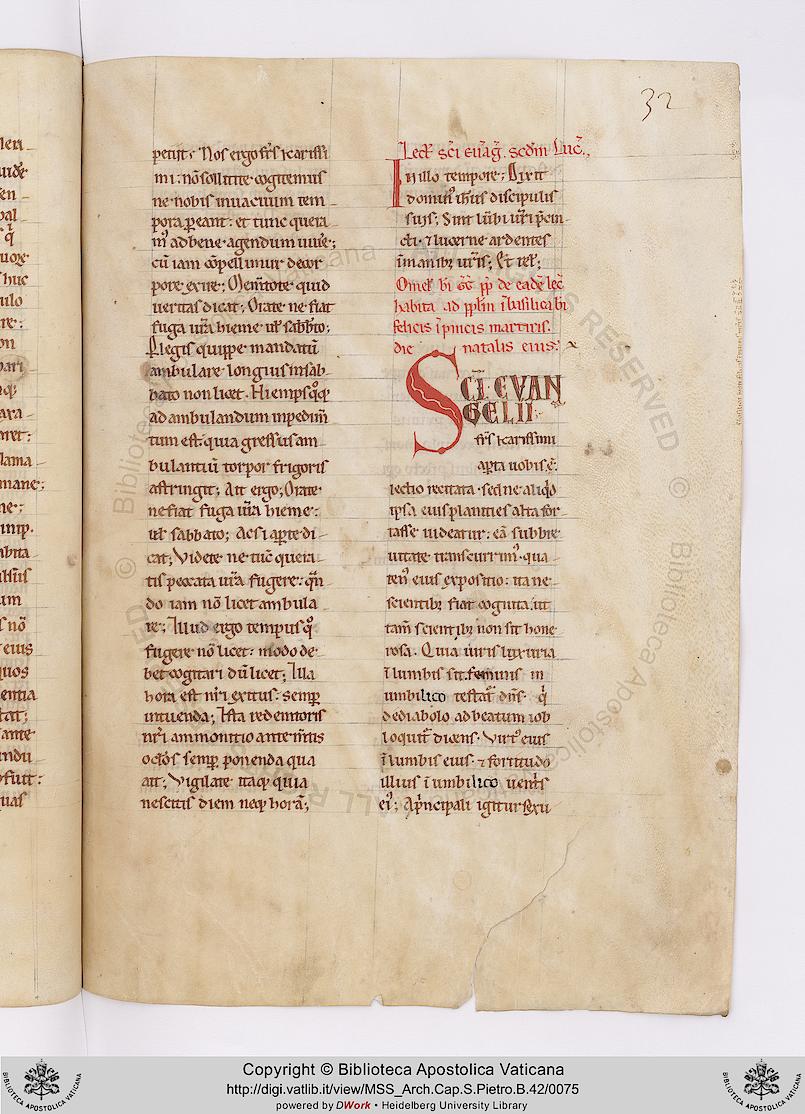 32
petiit; Nos ergo fr̄s karissi
mi: nō sollicite cogitemus
ne nobis in uacuum tem
pora pereant: et tunc quera
m᷒ ad bene agendum uiu̾e;
cū iam cōpellimur de cor
pore exire; Mem̄tote quid
ueritas dicat; Orate ne fiat
fuga ur̄a hieme uł sabb̄to;
Per legis quippe mandatū
ambulare longius in sab
bato non licet. Hiemps qq̄
ad ambulandum inpedim̄
tum est: quia gressus am
bulantiū torpor frigoris
astringit; Ait ergo; Orate
ne fiat fuga ur̄a hieme:
uł sabbato; Ac si aperte di
cat; Videte ne tūc quera
tis peccata ur̄a fugere: qn̄
do iam nō licet ambula
re; Illud ergo tempus qō
fugere nō licet: modo de
bet cogitari dū licet; Illa
hora est nr̄i exitus: semp̱
intuenda; Ista redemtoris
nr̄i ammonitio ante m̄tis
oc̄los semp̱ ponenda qua
ait; Vigilate itaq̱ quia
nescitis diem neq̱ horā;
Lect̄ sc̄i euāg̱. scdm̄ Luc̄.
In illo tempore; Dixit
domin᷒ ih̄us discipulis
suis; Sint lūbi ur̄i p̄cin
cti. ⁊ lucerne ardentes
ī manib; ur̄is; Et rel̄;
Omel̄ bī GḠ pp̄ de eadē lec̄
habita ad pp̄lm ī basilica bī
felicis ī pincis martiris.
die natalis eius.
SC̄I EVAN
GELII
fr̄s karissimi
ap̱ta uobis ē:
lectio recitata. sed ne aliq̊
ipsa eius planities alta for
tasse uideatur: eā sub bre
uitate transcurrim᷒. qua
ten᷒ eius expositio: ita ne
scientib; fiat cognita, ut
tam̄ scientib; non sit hone
rosa. Quia uiris luxuria
ī lumbis sit. feminis in
umbilico testat̄ dn̄s. q̄
de diabolo ad beatum iob
loquit̄ dicens. Virt᷒ eius
ī lumbis eius. ⁊ fortitudo
illius ī umbilico uent̄s
ei᷒; Ap̄ncipali igitur sexu
Copyright © Biblioteca Apostolica Vaticana
http://digi.vatlib.it/view/MSS_Arch.Cap.S.Pietro.B.42/0075
powered by DWork • Heidelberg University Library